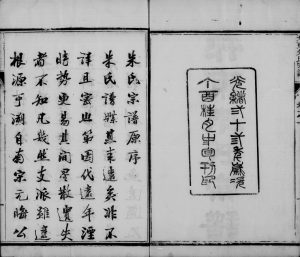 光緒弍十弎年歲次
丁酉桂月刊印
朱氏宗譜原序
朱氏譜牒其來遠矣非不
詳且密與第因代遠年湮
時勢更易其間星散遺失
者不知凡幾然支派雖遠
根源可溯自南宋元晦公